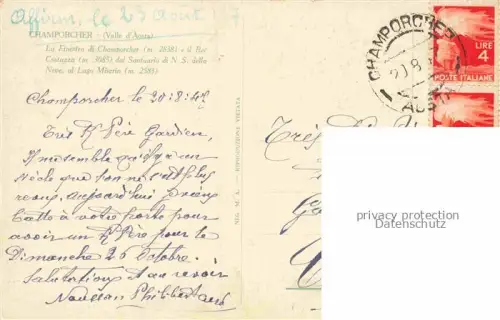 Affirm. le 23 Août 47
CHAMPORCHER - (Valle d'Aosta)
La Finestra di Champorcher (m. 2838) e il Bec
Costazza (m. 3085) dal Santuario di N. S. della
Neve, al Lago Miserin (m. 2583)
Champorcher le 20-8-47
Très R Père Gardien,
Il me semble qu'il y a un
siècle que l'on ne s'est plus
revus, aujourd'hui je viens
batte à votre porte pour
avoir un R Père pour le
Dimanche 26 Octobre.
Salutations et au revoir
Philibert curé
NEG. M. A. - RIPRODUZIONE VIETATA
CHAMPORCHER
20.8
AOSTA
LIRE
4
POSTE ITALIANE
Très
privacy protection
Datenschutz